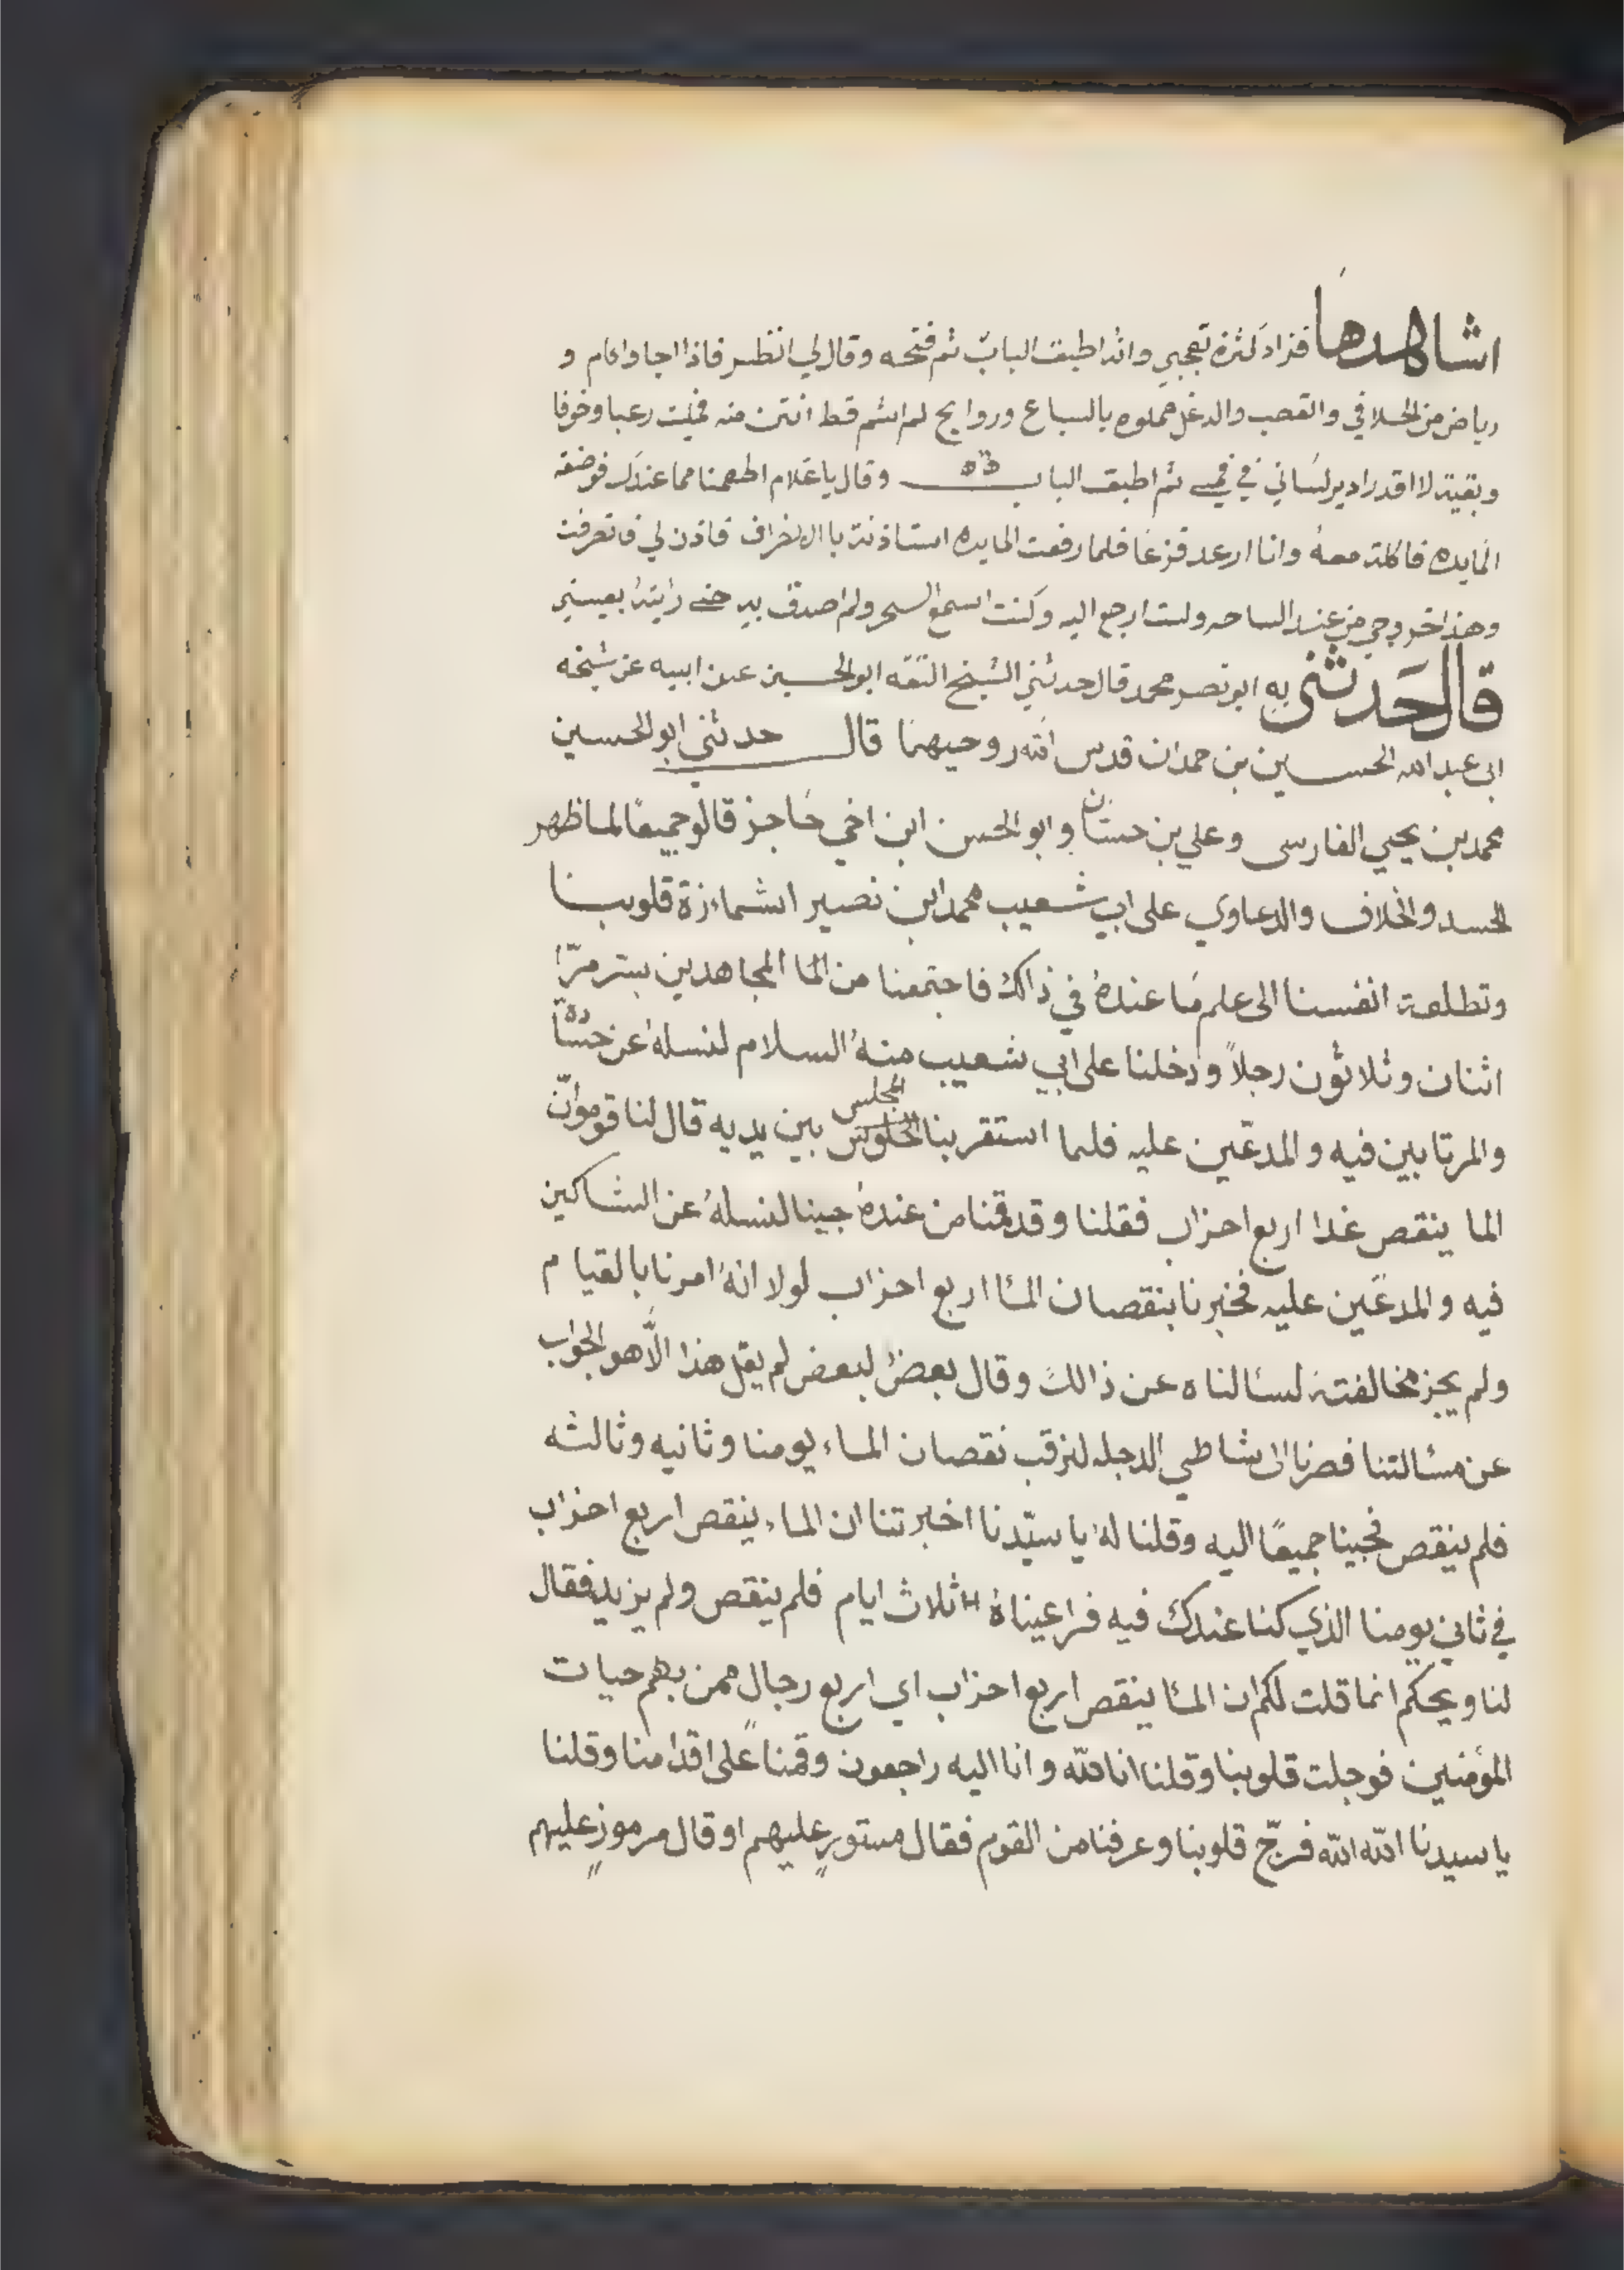 اشاهدها فزاد لثرة تعجبي وانه اطبق الباب ثم فتحه وقال لي انظر فاذا اجا واكام و
رياض من الحلافي والقصب والدغل مملوه بالسباع وروايح لم اشم قط انتن منه فمليت رعبا وخوفا
وبقيت لا اقدر ادير لساني في فمي ثم اطبق الباب وقال يا غلام اطعمنا مما عندك فوضعة
المايده فاكلت معهُ وانا ارعد فزعًا فلما رفعت المايده استاذنته بالانصراف فاذن لي فانصرفت
وهذا خروجي من عند الساحر ولست ارجع اليه وكنت اسمع السحر ولم اصدق به حتى رايته بعيني
قال حَدثني به ابو نصر محمد قال حدثني الشيخ الثقه ابو الحسين عن ابيه عن شيخه
ابي عبد الله الحسين بن حمدان قدس الله روحيهما قال حدثني ابو الحسين
محمد بن يحيي الفارسي وعلي بن حسان وابو الحسن ابن اخي حاجز قالو جميعًا لما ظهر
الحسد والخلاف والدعاوي على ابي شعيب محمد ابن نصير اشماءزة قلوبنا
وتطلعة انفسنا الى علم مَا عندهُ في ذالك فاجتمعنا من الما المجاهدين بستر مرّا
اثنان وثلاثون رجلاً ودخلنا على ابي شعيب منهُ السلام لنسله عن
والمرتابين فيه والمدعّين عليه فلما استقر بنا الجلوس المجلس بين يديه قال لنا قوموا انّ
الما ينقص غدا اربع احزاب فقلنا وقد قمنا من عندهُ جينا لنسلهُ عن الشاكين
فيه والمدعّين عليه فخبرنا بنقصان المآ اربع احزاب لولا انهُ امرنا بالقيام
ولم يجز مخالفته لسالناه عن ذالك وقال بعضُ لبعض لم يقل هذا الّا هو الجواب
عن مسالتنا فصرنا الى شاطي الدجله لنرقب نقصان الماء يومنا وثانيه وثالثه
فلم ينقص فجينا جميعًا اليه وقلنا لهُ يا سيّدنا اخبرتنا ان الماء ينقص اربع احزاب
في ثاني يومنا الذي كنا عندك فيه فراعيناهُ ثلاث ايام فلم ينقص ولم يزيد فقال
لنا ويحكم انما قلت لكم ان المآ ينقص اربع احزاب اي اربع رجال ممن بهم حيات
المؤمنين فوجلت قلوبنا وقلنا انا لله وانا اليه راجعون وقمناً على اقدامنا وقلنا
يا سيدنا الله الله فرّج قلوبنا وعرفنا من القوم فقال مستورٍ عليهم او قال مرموزٍ عليهم